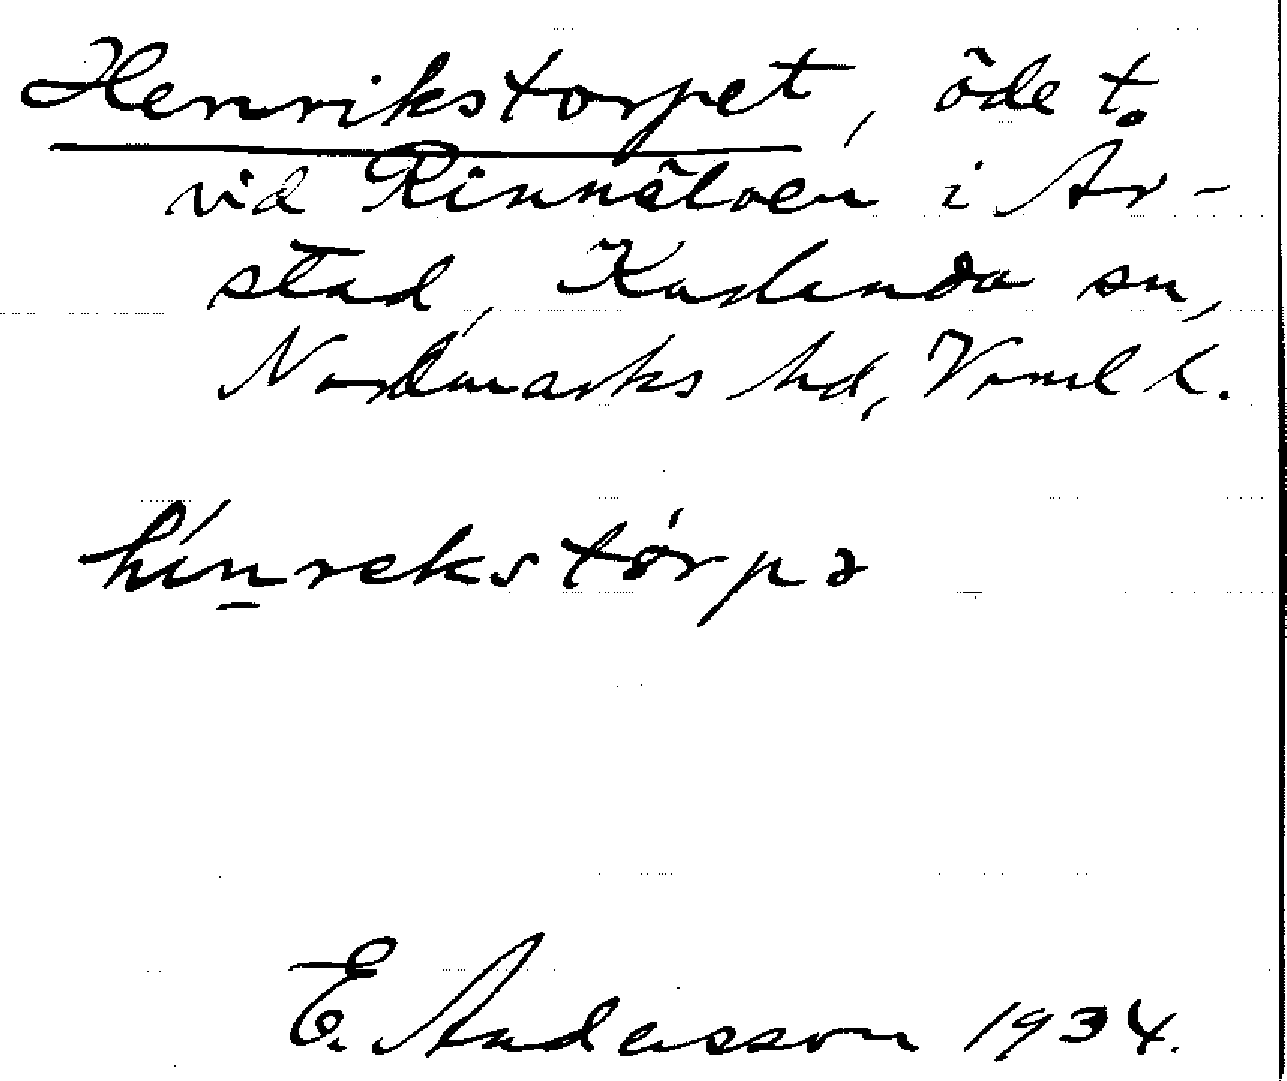 Henrikstorpet, öde t.
vid Rinnälven i År-
stad, Karlanda sn,
Nordmarks hd, Vrml l.
hínrekstórpə
E. Andersson 1934.